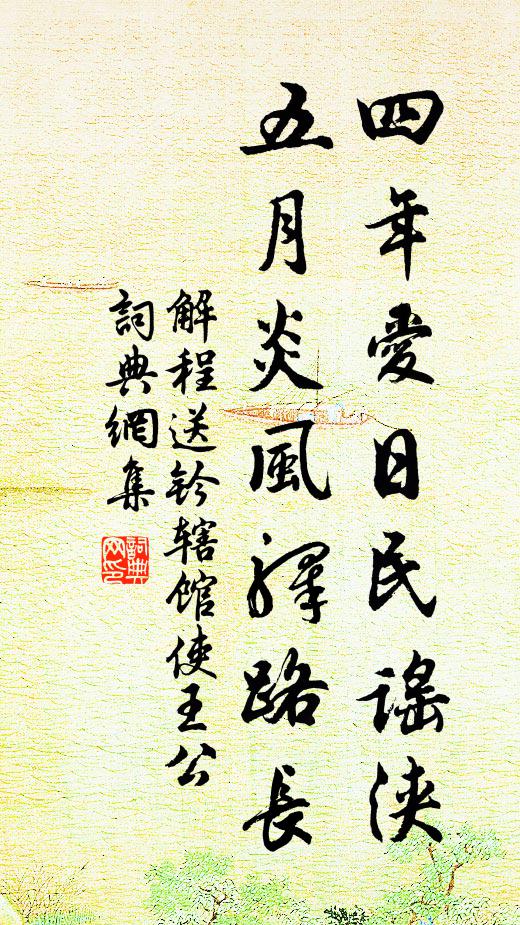 四年愛日民謠浹
五月炎風驛路長
解程送鈐轄馆使王公
詞典網集
詞典网印